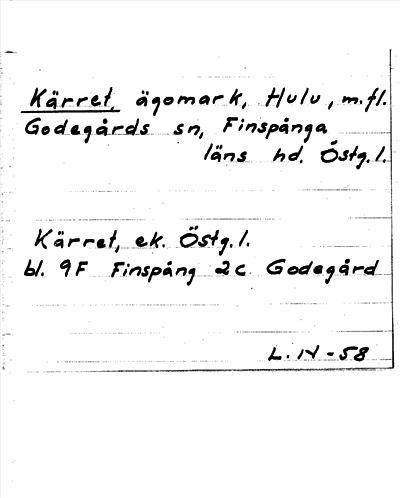 Kärret, ägomark, Hulu, m.fl.
Godegårds sn, Finspånga
läns hd. Östg.l.
Kärret, ek. Östg.l.
bl. 9F Finspång 2c Godegård
L. N - 58